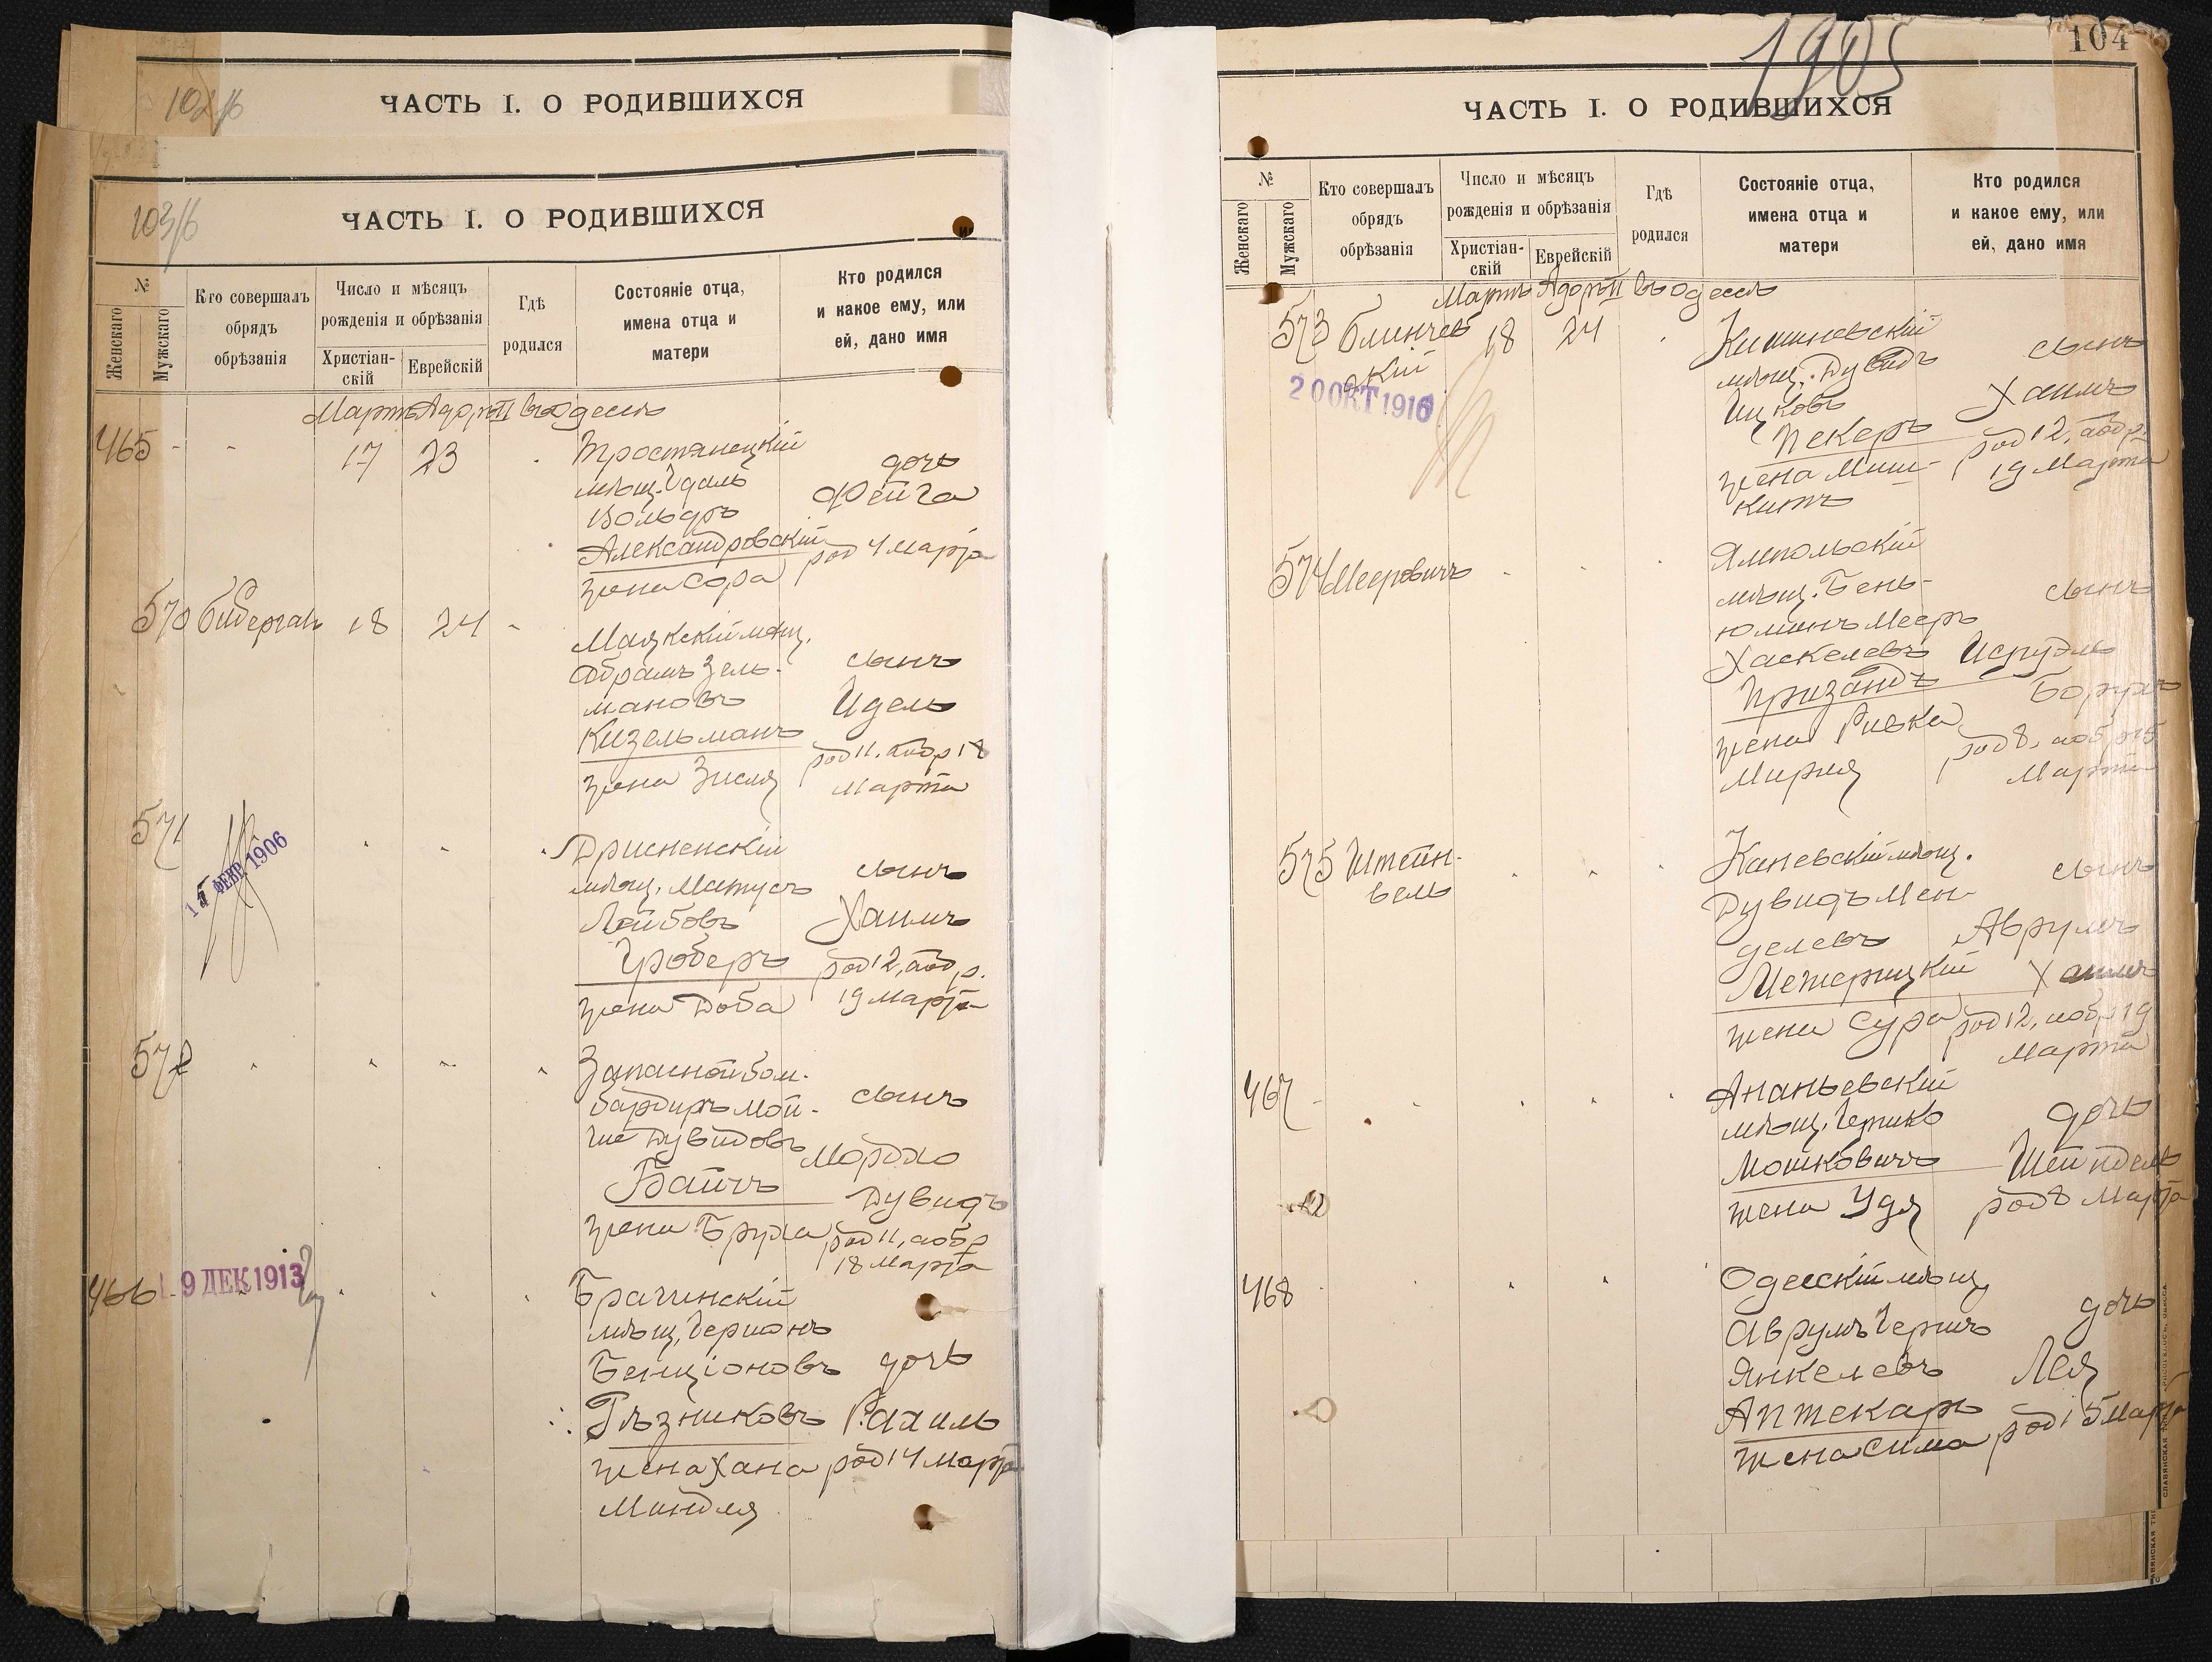 102/б
ЧАСТЬ I. О РОДИВШИХСЯ
103/б
ЧАСТЬ I. О РОДИВШИХСЯ
№
Женскаго
Мужскаго
Кто совершалъ
обрядъ
обрѣзанія
Число и мѣсяцъ
рожденія и обрѣзанія
Христіан-
скій
Еврейскій
Гдѣ
родился
Состояніе отца,
имена отца и
матери
Кто родился
и какое ему, или
ей, дано имя
Мартъ Адоръ II въ Одессѣ
465 - - 17 23
Тростянецкій
мѣщ. Удаль
Вольфъ
Александровскій
жена Сора
дочь
Фейга
род 4 Марта
570 Бидерган 18 24 -
Маякскій мѣщ.
Абрамъ Зель-
мановъ
Кизельманъ
жена Зисля
сынъ
Идель
род 11, а обр 18
Марта
571
15 ФЕВР. 1906
Дрисненскій
мѣщ. Матусъ
Лейбовъ
Гроберъ
жена Доба
сынъ
Хаимъ
род 12, а об р.
19 Марта
572
Запасной бом-
бардиръ Мой-
ше Дувидовъ
Байчъ
жена Бруха
сынъ
Мордко
Дувидъ
род 11, а обр
18 Марта
466 -
19 ДЕК 1913
Брагинскій
мѣщ. Герцонъ
Бенціоновъ
Рѣзниковъ
жена Хана
Миндля
дочь
Рахиль
род 14 Марта
1905
104
ЧАСТЬ I. О РОДИВШИХСЯ
№
Женскаго
Мужскаго
Кто совершалъ
обрядъ
обрѣзанія
Число и мѣсяцъ
рожденія и обрѣзанія
Христіан-
скій
Еврейскій
Гдѣ
родился
Состояніе отца,
имена отца и
матери
Кто родился
и какое ему, или
ей, дано имя
Мартъ Адоръ II въ Одессѣ
573 Блинчев 18 24
ский
20 ОКТ 1916
Кишиневскій
мѣщ. Дувидъ
Ицковъ
Пекеръ
жена Миш-
китъ
сынъ
Хаимъ
род 12, а об р.
19 Марта
574 Мееровичъ
Ямпольскій
мѣщ. Бень-
юминъ Мееръ
Хаскелевъ
Призандъ
жена Ривка
Мирля
сынъ
Исруэль
Борухъ
род 8, а об р 15
Марта
575 Штейн-
вель
Каневскій мѣщ.
Дувидъ Мен-
делевъ
Межерицкій
жена Сура
сынъ
Аврумъ
Хаимъ
род 12, а обр 19
Марта
467 -
Ананьевскій
мѣщ. Гершко
Мошковичъ
жена Удя
дочь
Шейндель
род 8 Марта
468
Одесскій мѣщ
Аврумъ Гершъ
Янкелевъ
Аптекарь
жена Сима
дочь
Лея
род 15 Марта